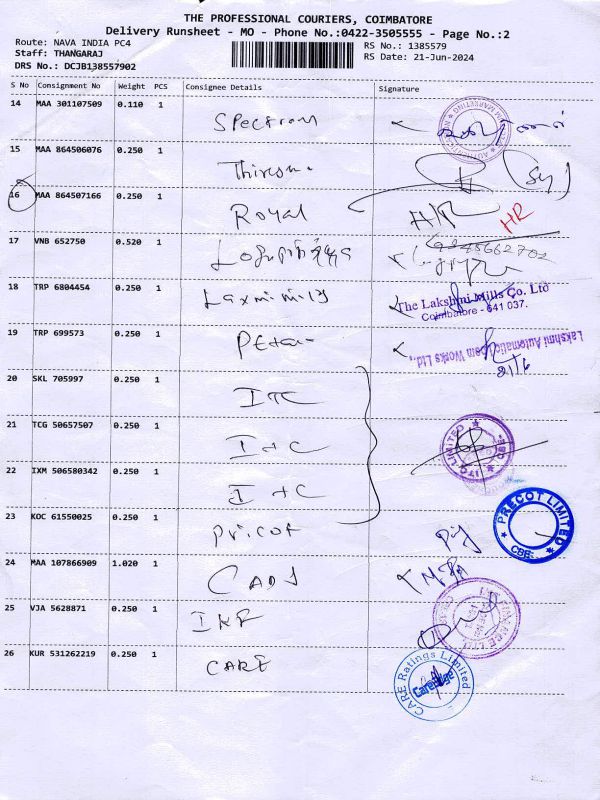 THE PROFESSIONAL COURIERS, COIMBATORE
Delivery Runsheet - MO - Phone No.:0422-3505555 - Page No.:2
Route: NAVA INDIA PC4
RS No.: 1385579
Staff: THANGARAJ
RS Date: 21-Jun-2024
DRS No.: DCJB138557902
S No Consignment No Weight PCS Consignee Details Signature
14 MAA 301107509 0.110 1 Spectrum
15 MAA 864506076 0.250 1
16 MAA 864507166 0.250 1 Royal HR HR
17 VNB 652750 0.520 1
18 TRP 6804454 0.250 1 Laxmi mills
The Lakshmi Mills Co. Ltd
Coimbatore - 641 037.
19 TRP 699573 0.250 1
Lakshmi Automatic Loom Works Ltd.,
21/6
20 SKL 705997 0.250 1 ITC
21 TCG 50657507 0.250 1 ITC
ITC LIMITED
22 IXM 506580342 0.250 1 ITC
23 KOC 61550025 0.250 1 Pricot
PRECOT LIMITED
CBE-
24 MAA 107866909 1.020 1 CADS
25 VJA 5628871 0.250 1 IKF
26 KUR 531262219 0.250 1 CARE
CARE Ratings Limited
CareEdge